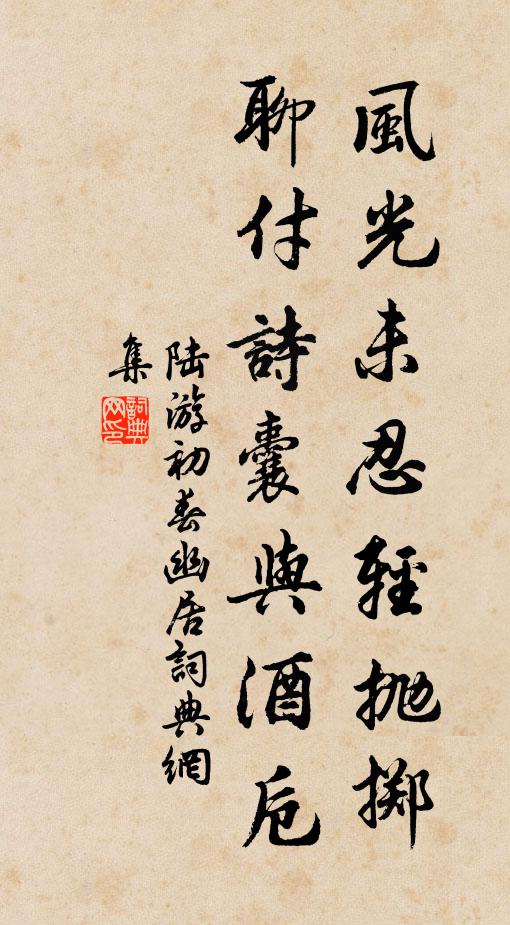 風光未忍輕抛擲
聊付詩囊與酒卮
陆游初春幽居詞典網
集
詞典网印